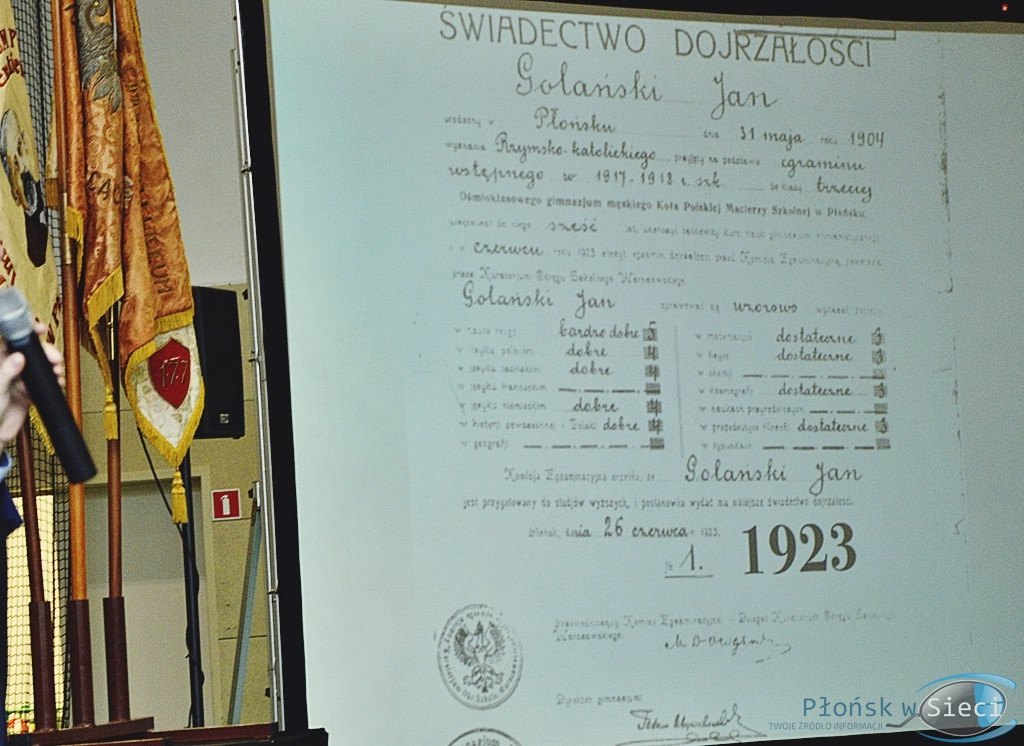 ŚWIADECTWO DOJRZAŁOŚCI
Golański Jan
urodzony w Płońsku dnia 31 maja roku 1904
wyznania Rzymsko-katolickiego, przyjęty na podstawie egzaminu
wstępnego w 1917-1918 r. szk. do klasy trzeciej
Ośmioklasowego gimnazjum męskiego Koła Polskiej Macierzy Szkolnej w Płońsku,
sześć lat,
i w czerwcu roku 1923 złożył egzamin dojrzałości przed Komisją Egzaminacyjną, powołaną
przez Kuratorjum Okręgu Szkolnego Warszawskiego.
Golański Jan sprawował się wzorowo
w nauce religji bardzo dobre 5
w języku polskim dobre 4
w języku łacińskim dobre 4
w języku francuskim
w języku niemieckim dobre 4
w historji powszechnej i Polski dobre 4
w geografji
w matematyce dostateczne 3
w fizyce dostateczne 3
w chemji
w kosmografji dostateczne 3
w naukach przyrodniczych
w propedeutyce filozofji dostateczne 3
w rysunkach
Komisja Egzaminacyjna orzekła, że Golański Jan
jest przygotowany do studjów wyższych, i postanowiła wydać mu niniejsze świadectwo dojrzałości.
Płońsk, dnia 26 czerwca r. 1923.
№ 1. 1923
Przewodniczący Komisji Egzaminacyjnej — Delegat Kuratorjum Okręgu Szkolnego
Warszawskiego:
Dyrektor gimnazjum:
177
Płońsk w Sieci
TWOJE ŹRÓDŁO INFORMACJI